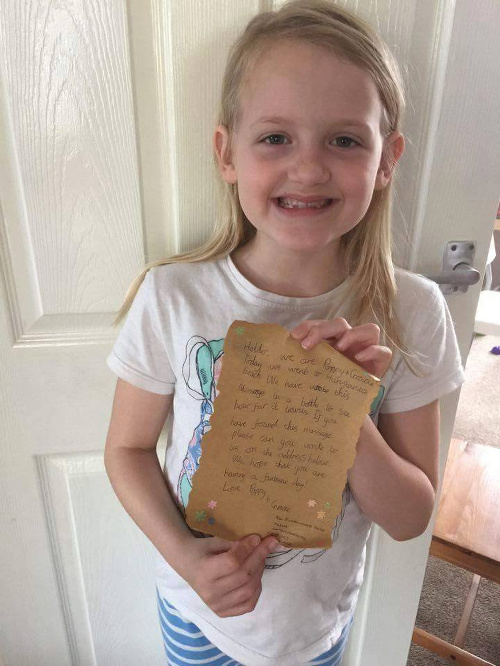 Hello, we are Poppy +
Today we went to Hunstanton
beach. We have wrote this
message in a bottle to see
how far it travels. If you
have found this message
please can you write to
us on the address below.
We hope that you are
having a fantastic day!
Love Poppy
+